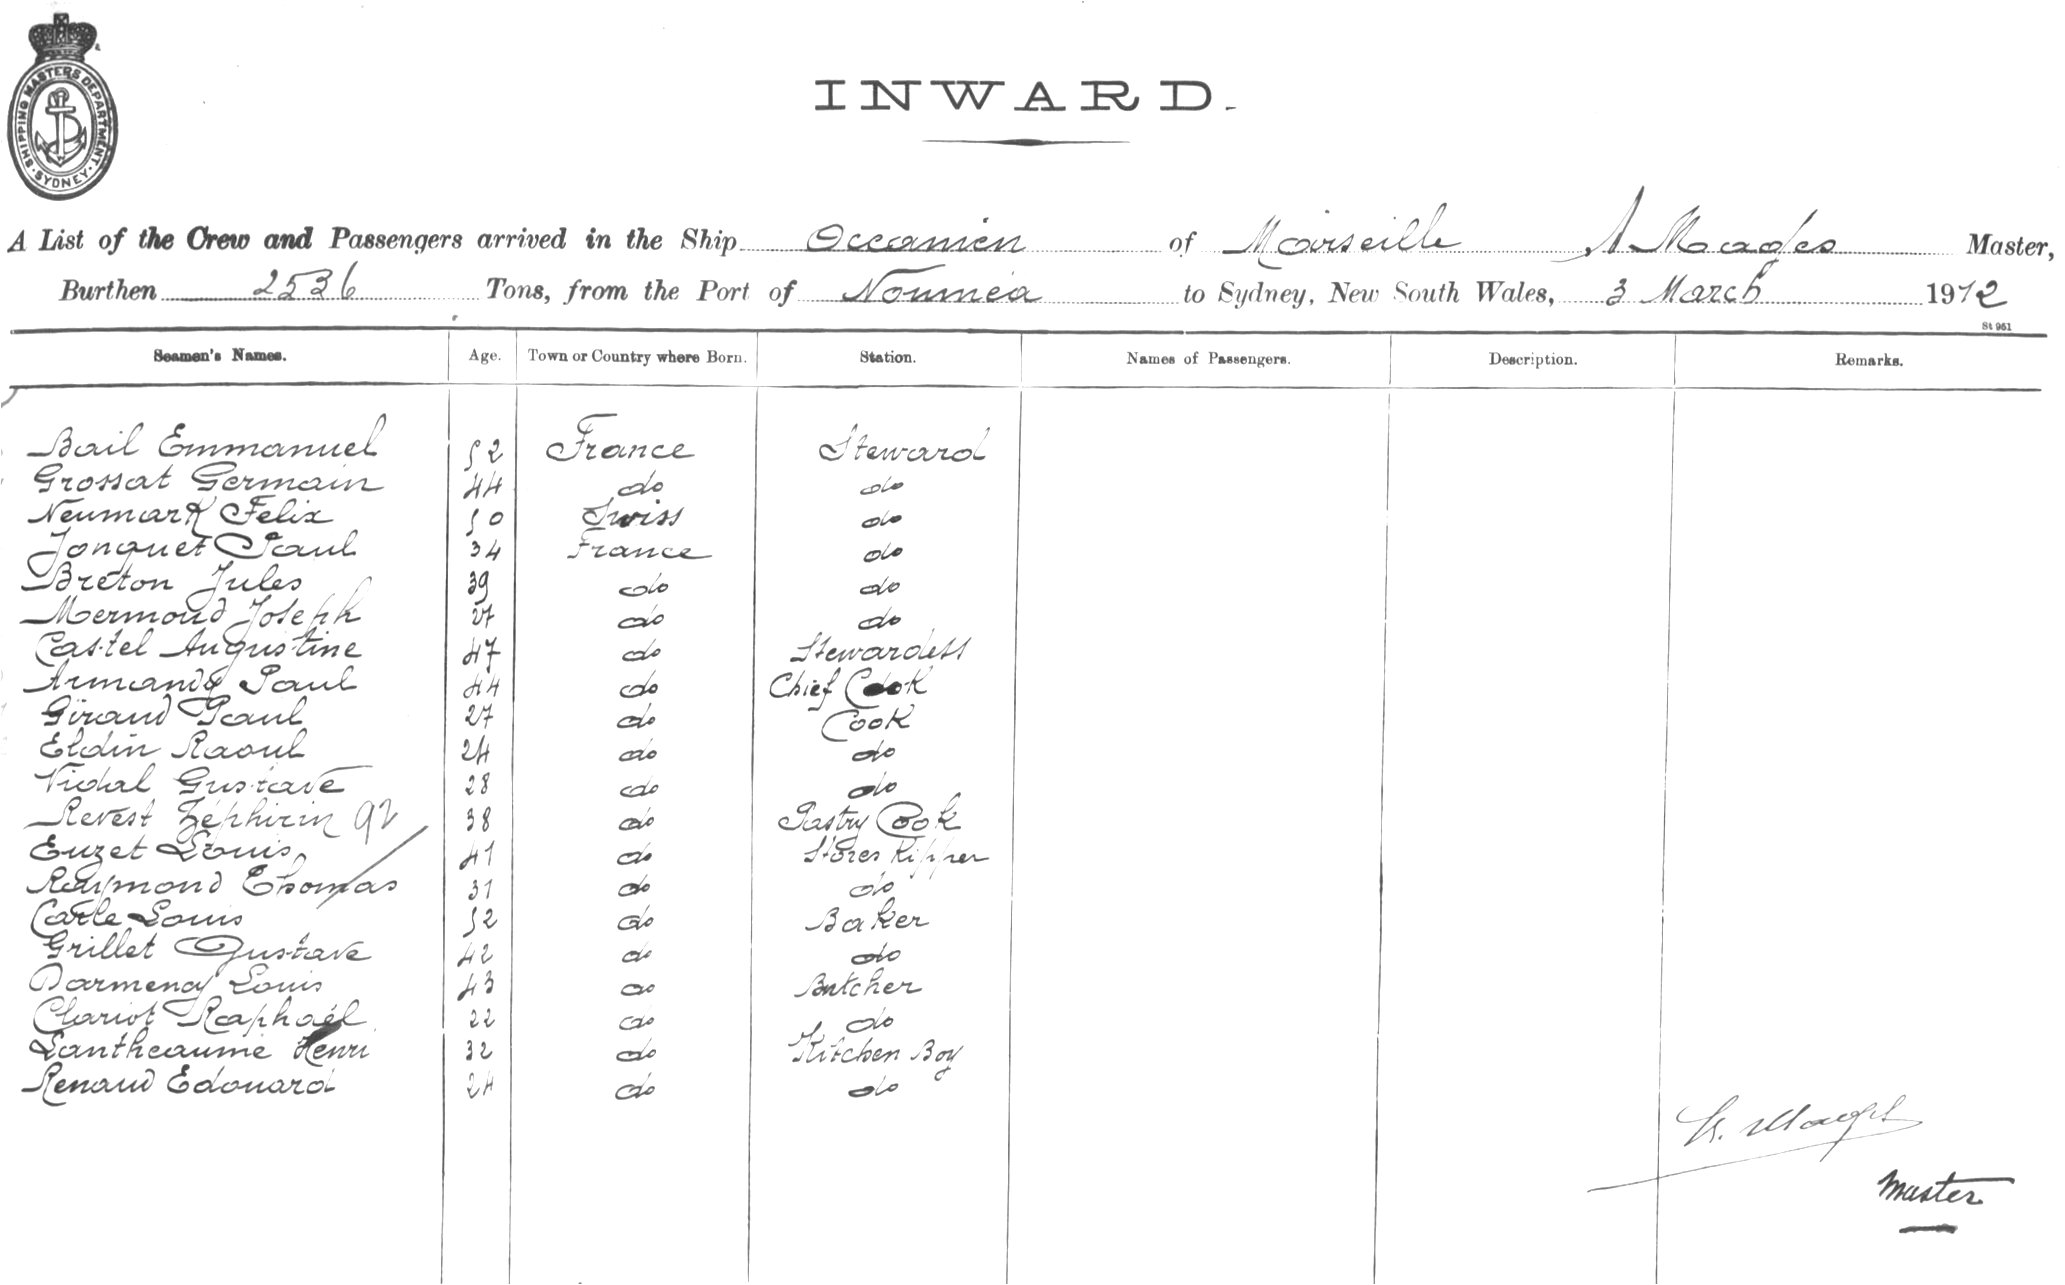 SHIPPING MASTERS DEPARTMENT
· SYDNEY ·
INWARD.
A List of the Crew and Passengers arrived in the Ship Occanien of Marseille A Mages Master,
Burthen 2536 Tons, from the Port of Nouméa to Sydney, New South Wales, 3 March 1912
St 961
Seamen's Names. Age. Town or Country where Born. Station. Names of Passengers. Description. Remarks.
Bail Emmanuel 52 France Steward
Grossat Germain 44 do do
Neumark Felix 50 Swiss do
Jonquet Paul 34 France do
Breton Jules 39 do do
Mermoud Joseph 27 do do
Castel Augustine 47 do Stewardess
Armand Paul 44 do Chief Cook
Giraud Paul 27 do Cook
Eldin Raoul 24 do do
Vidal Gustave 28 do do
Revest Zéphirin 92 38 do Pastry Cook
Euzet Louis 41 do Stores Kipper
Raymond Thomas 31 do do
Carle Louis 52 do Baker
Grillet Gustave 42 do do
Darmenay Louis 43 do Butcher
Clariot Raphaël 22 do do
Lantheaume Henri 32 do Kitchen Boy
Renaud Edouard 24 do do
Mages
Master